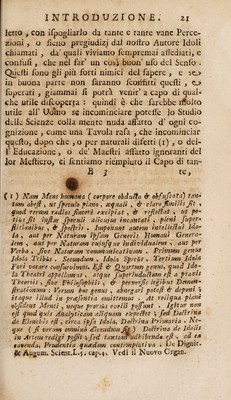 INTRODUZIONE. 21
letto, con ispogliarlo da tante e tante vane Perce-
zioni, o sieno pregiudizj dal nostro Autore Idoli
chiamati, da' quali viviamo sempremai assediati, e
confusi, che nel far' un così buon' uso del Senso.
Questi sono gli più forti nimici del sapere, e se
in buona parte non saranno sconfitti questi, e
superati, giammai si potrà venir' a capo di qual-
che utile discoperta: quindi è che sarebbe molto
utile all' Uomo se incominciar potesse lo Studio
delle Scienze colla mente nuda affatto d' ogni co-
gnizione, come una Tavola rasa, che incominciar
questo, dopo che, o per naturali difetti (1) o del-
l' Educazione, o de' Mestri affatto ignoranti del
lor Mestiero, ei sentiamo riempiuto il Capo di tan-
B 3 te,
(1) Nam Mens humana (corpore obducta & obfuscata) tan-
tum abest, ut speculo plano, æquali, & claro similis sit,
quod rerum radios sincerè excipiat, & reflectat, ut po-
tius sit instar speculi alicujus incantati, pleni super-
stitionibus, & spectris. Imponunt autem intellectui Ido-
la, aut per Naturam ipsam Generis Humani Genera-
lem, aut per Naturam cujusque individualem, aut per
Verba, sive Naturam communicativam. Primum genus
Idola Tribus, Secundum, Idola Specus, Tertium Idola
Fori vocare consuevimus. Est & Quartum genus, quod Ido-
la Theatri appellamus, atque superinductum est a pravis
Theoriis, sive Philosophiis, & perversis legibus Demon-
strationum: Verum hoc genus, abnegari potest & deponi
itaque illud in præsentia omittemus. At reliqua planè
obsident Mentem, neque prorsus evelli possunt. Igitur non
est quod quis Analyticam aliquam expectet, sed Doctrina
de Elenchis est, circa Ipsa Idola, Doctrina Primaria. Ne-
que (si verum omninò dicendum sit) Doctrina de Idolis
in Artem redigi possit, sed tantum adhibenda est, ad ea
cavenda, Prudentia quædam contemplativa. De Dignit.
& Augum. Scient. L. 5. cap. 4. Vedi il Nuovo Organ.